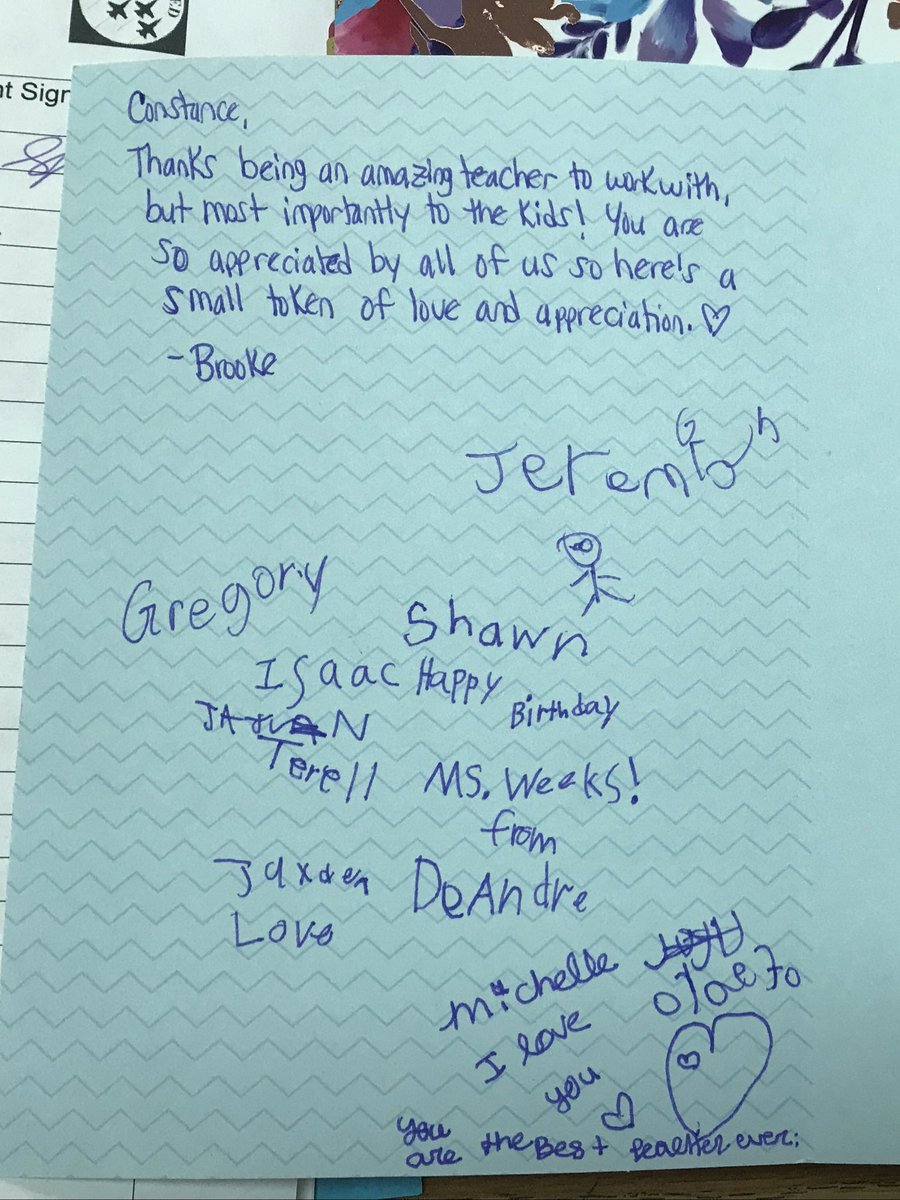 ED
nt Sign
Constance,
Thanks being an amazing teacher to work with,
but most importantly to the kids! You are
so appreciated by all of us so here's a
small token of love and appreciation. ♡
- Brooke
Jeremiah
G
Gregory
Shawn
Isaac Happy
Birthday
Terell
Ms. Weeks!
from
Jaxden
DeAndre
Love
Michelle
I love
you
you
are the Best teacher ever.